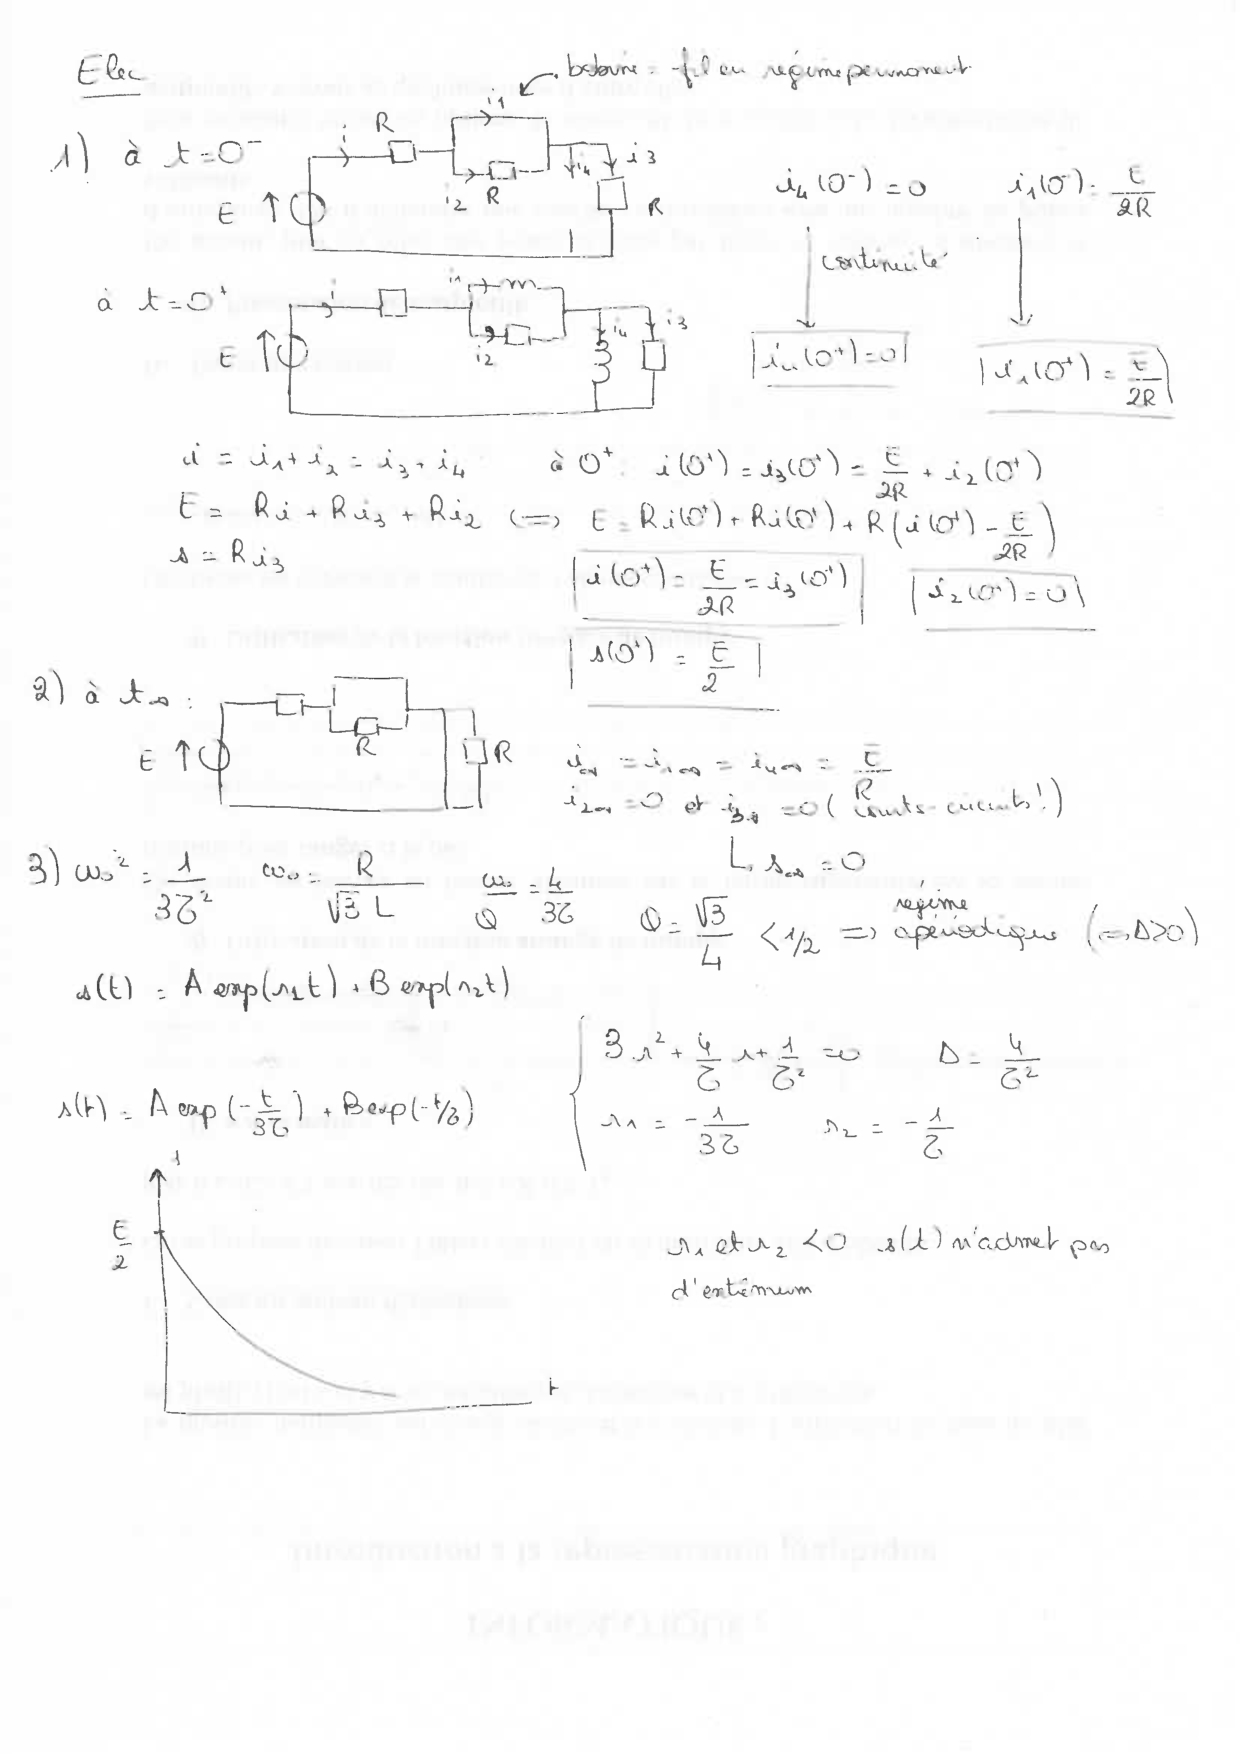 Elec
bobine = fil en régime permanent
1) à t = 0⁻
i R i1 i2 R i4 i3 R E
i4(0⁻) = 0 i1(0⁻) = E/2R
continuité
à t = 0⁺
i i1 i2 i4 i3 E
i4(0⁺) = 0 i1(0⁺) = E/2R
i = i1 + i2 = i3 + i4 à 0⁺ : i(0⁺) = i3(0⁺) = E/2R + i2(0⁺)
E = Ri + Ri3 + Ri2 <=> E = Ri(0⁺) + Ri(0⁺) + R(i(0⁺) - E/2R)
s = Ri3
i(0⁺) = E/2R = i3(0⁺) i2(0⁺) = 0
s(0⁺) = E/2
2) à t∞ :
E R R
i∞ = i1∞ = i4∞ = E/R
i2∞ = 0 et i3∞ = 0 (courts-circuits !)
L, s∞ = 0
3) ω0² = 1/3τ² ω0 = R/√3 L ω0/Q = 4/3τ Q = √3/4 < 1/2 => régime apériodique (=> Δ>0)
s(t) = A exp(r1t) + B exp(r2t)
3r² + 4/τ r + 1/τ² = 0 Δ = 4/τ²
s(t) = A exp(-t/3τ) + B exp(-t/τ)
r1 = -1/3τ r2 = -1/τ
s
E/2
r1 et r2 < 0 s(t) n'admet pas
d'extémum
t